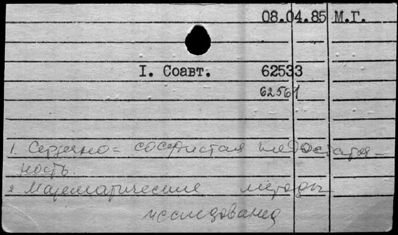 08.04.85 М.Г.
I. Соавт. 62533
62561
1. Сердечно-сосудистая недостаточ-
ность.
2. Математические методы
исследования